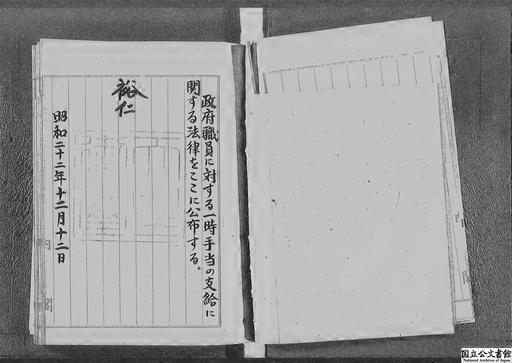 政府職員に対する一時手当の支給に
関する法律をここに公布する。
裕仁
昭和二十二年十二月十二日
内閣
国立公文書館
National Archives of Japan